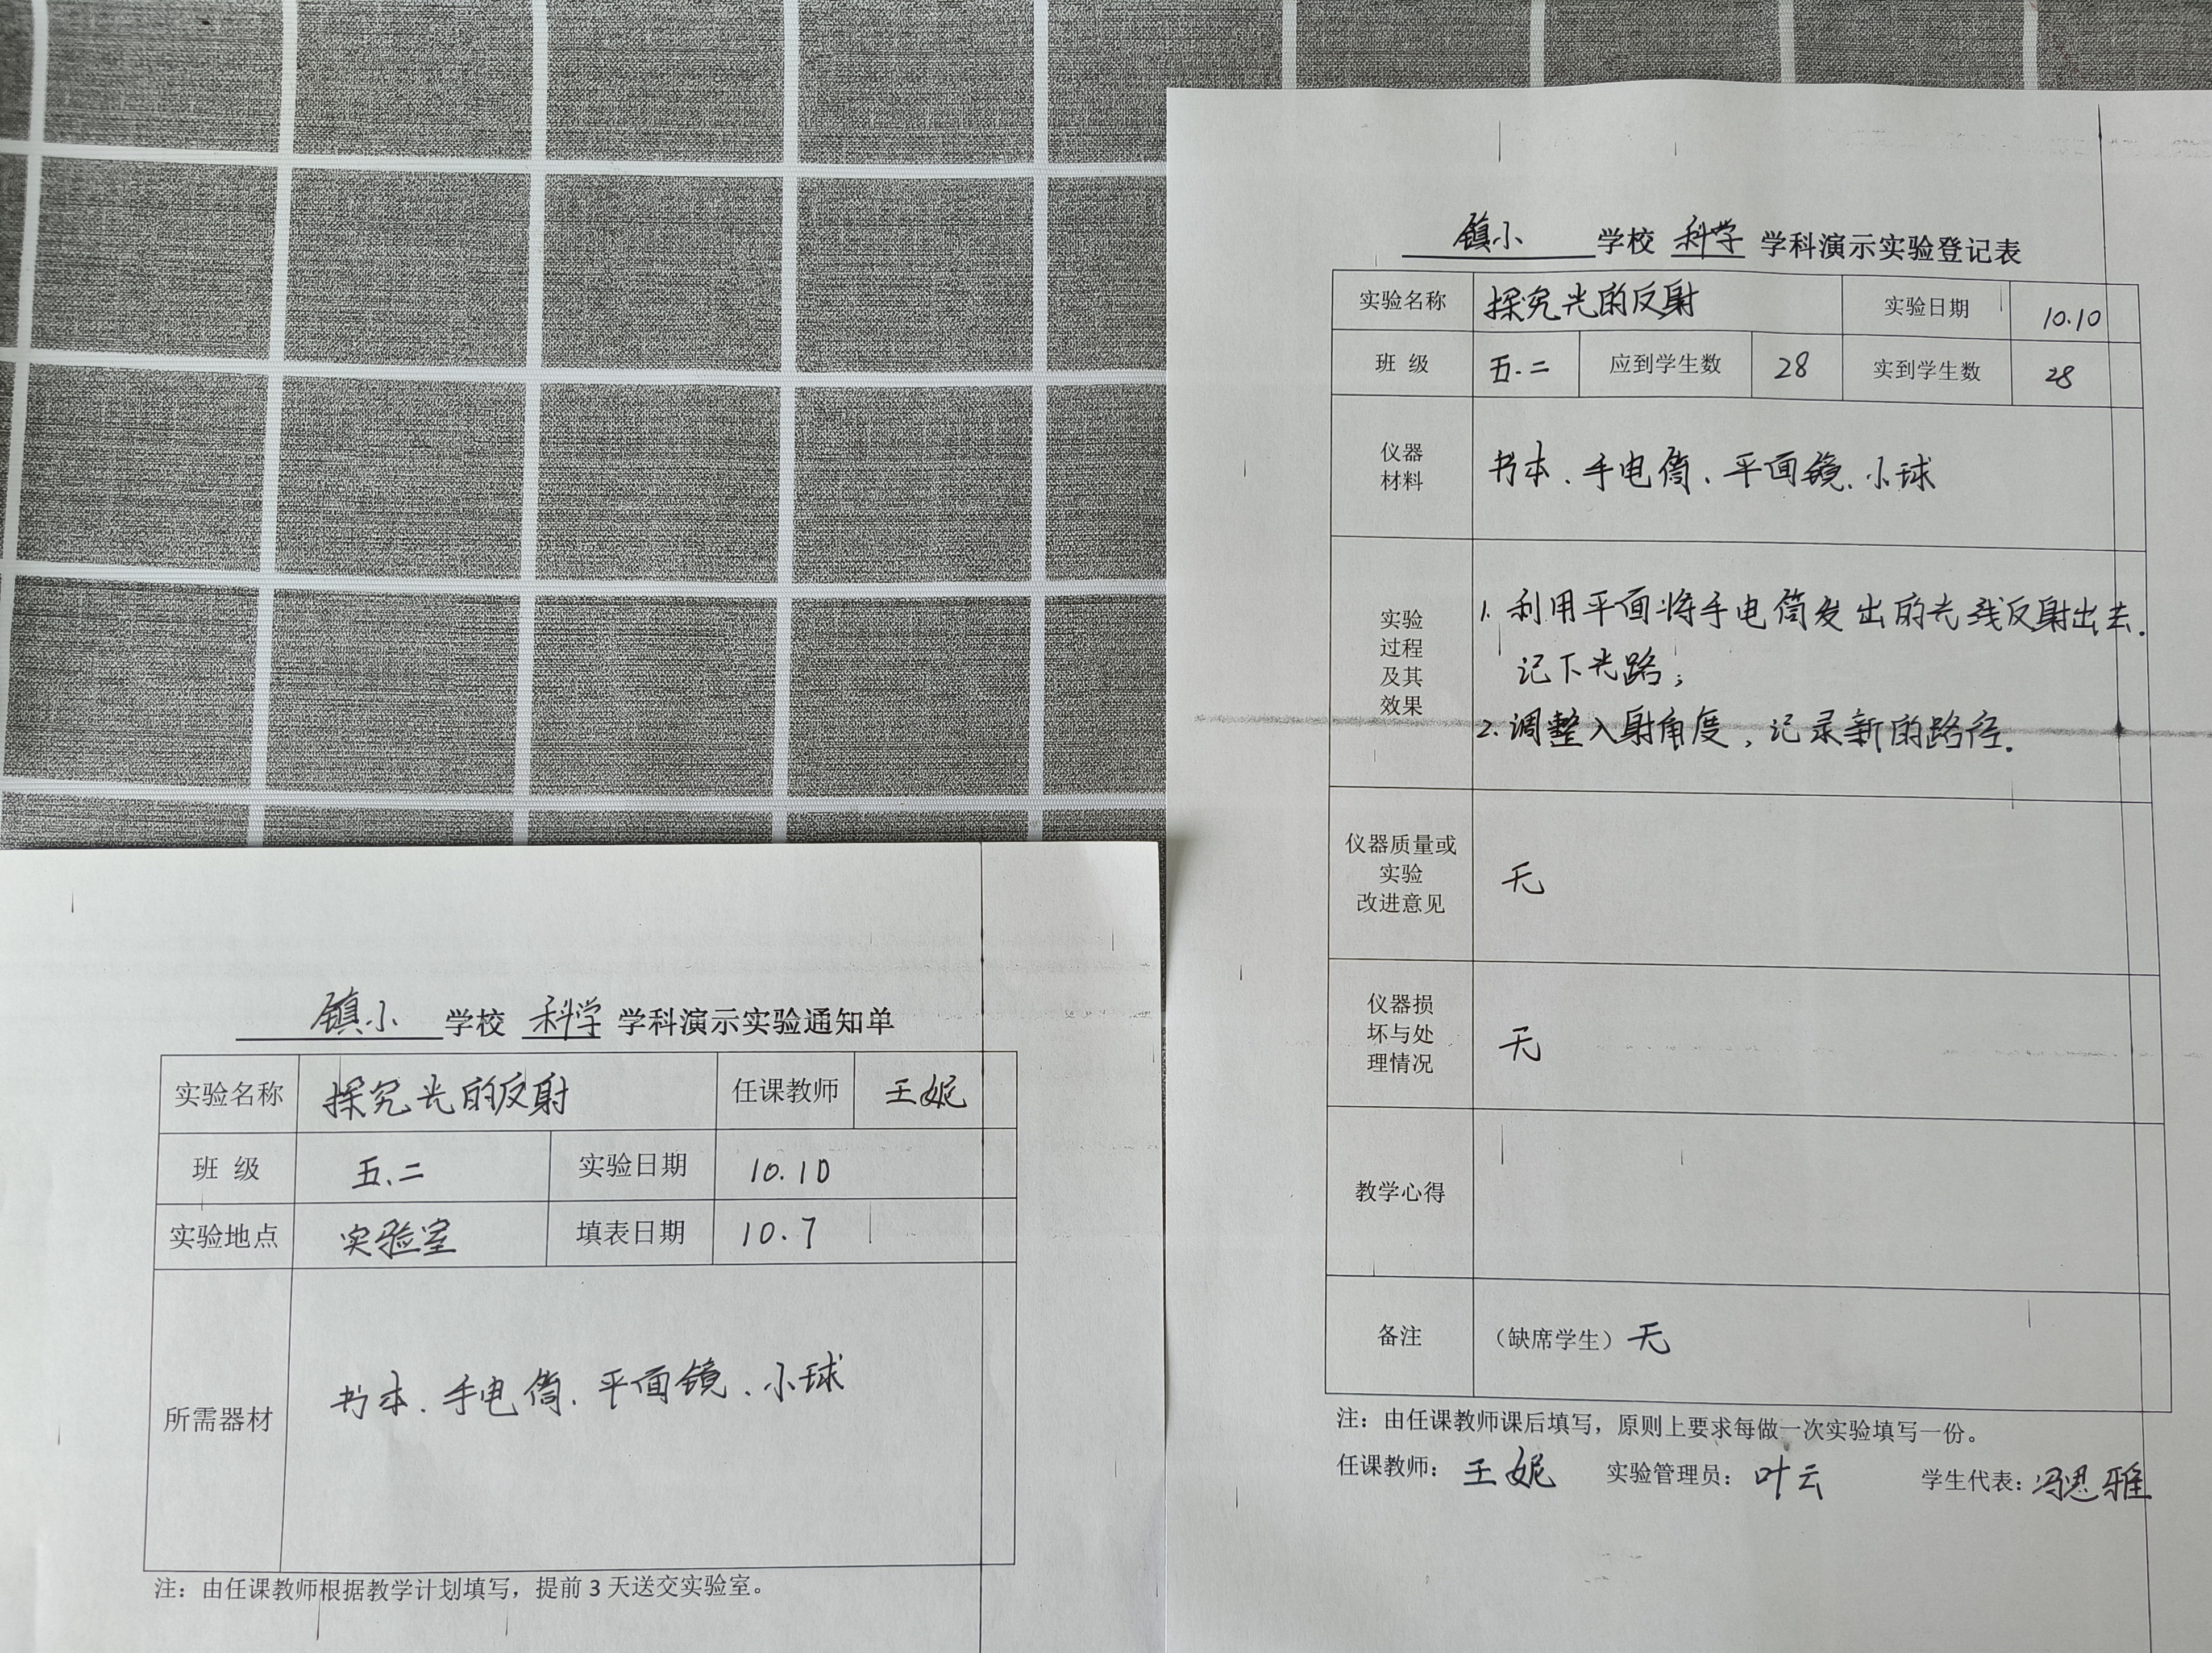 镇小 学校 科学 学科演示实验通知单
实验名称 探究光的反射 任课教师 王妮
班 级 五.二 实验日期 10.10
实验地点 实验室 填表日期 10.7
所需器材 书本、手电筒、平面镜、小球
注：由任课教师根据教学计划填写，提前 3 天送交实验室。
镇小 学校 科学 学科演示实验登记表
实验名称 探究光的反射 实验日期 10.10
班 级 五.二 应到学生数 28 实到学生数 28
仪器
材料
书本、手电筒、平面镜、小球
实验
过程
及其
效果
1. 利用平面将手电筒发出的光线反射出去.
记下光路；
2. 调整入射角度，记录新的路径.
仪器质量或
实验
改进意见
无
仪器损
坏与处
理情况
无
教学心得
备注 （缺席学生）无
注：由任课教师课后填写，原则上要求每做一次实验填写一份。
任课教师：王妮 实验管理员：叶云 学生代表：冯思雅